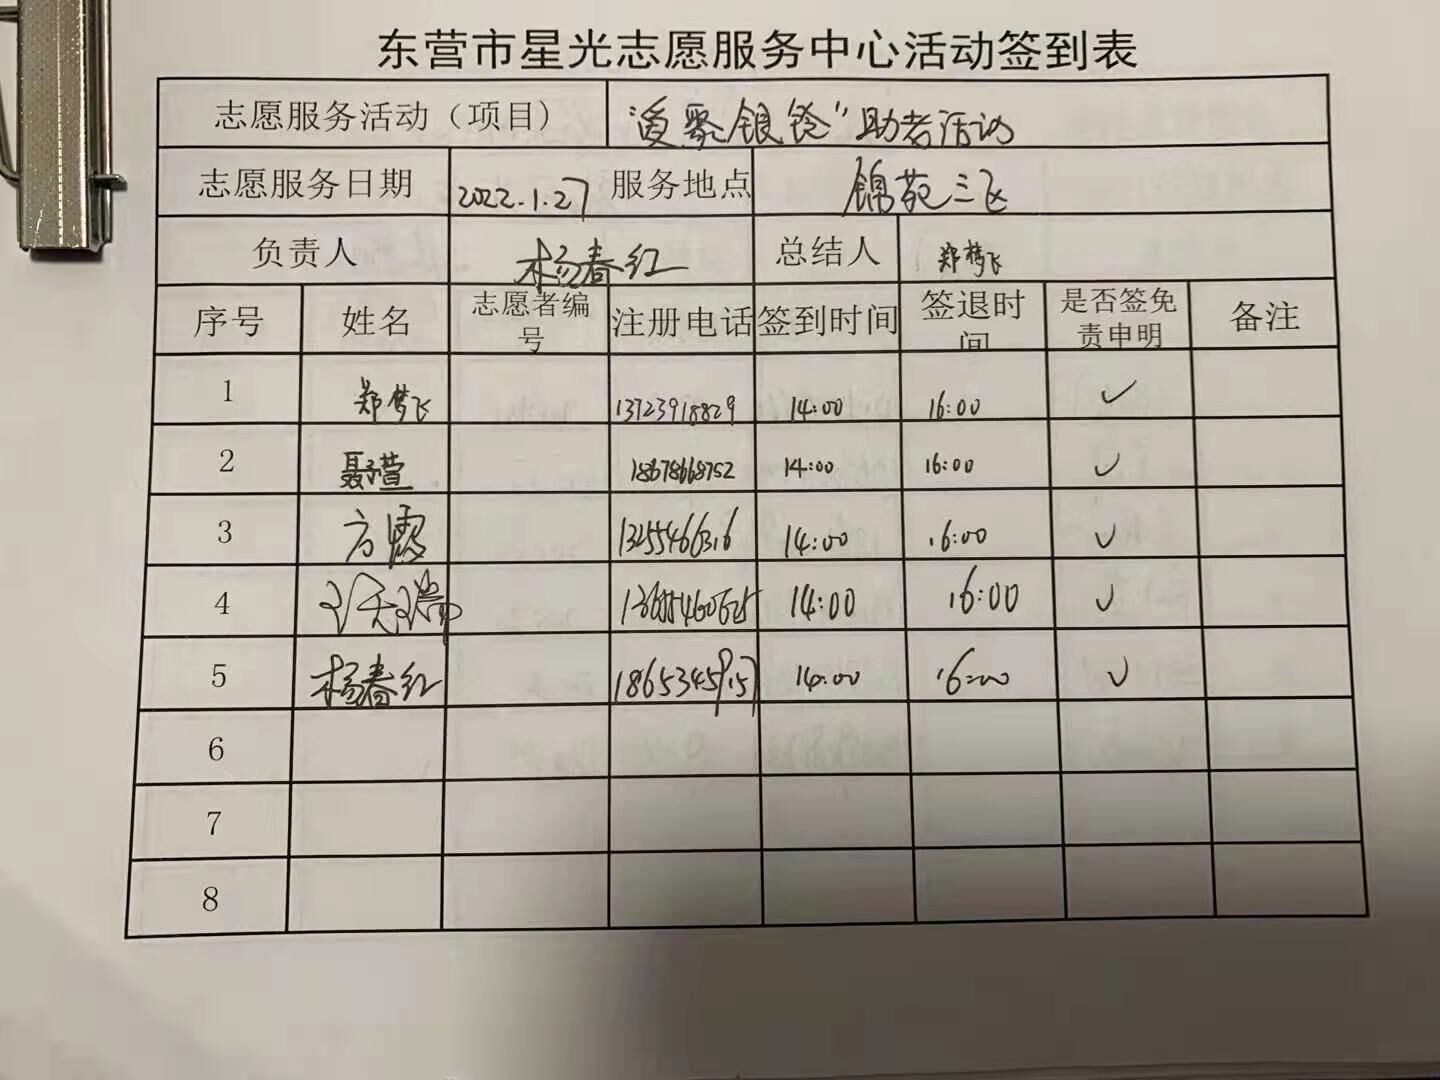 东营市星光志愿服务中心活动签到表
志愿服务活动（项目） "爱聚银铃"助老活动
志愿服务日期 2022.1.27 服务地点 锦苑三区
负责人 杨春红 总结人 郑梦飞
序号 姓名 志愿者编号 注册电话 签到时间 签退时间 是否签免责申明 备注
1 郑梦飞 13723918829 14:00 16:00 ✓
2 聂子萱 18678668752 14:00 16:00 ✓
3 方露 13255466316 14:00 16:00 ✓
4 14:00 16:00 ✓
5 杨春红 14:00 16:00 ✓
6
7
8